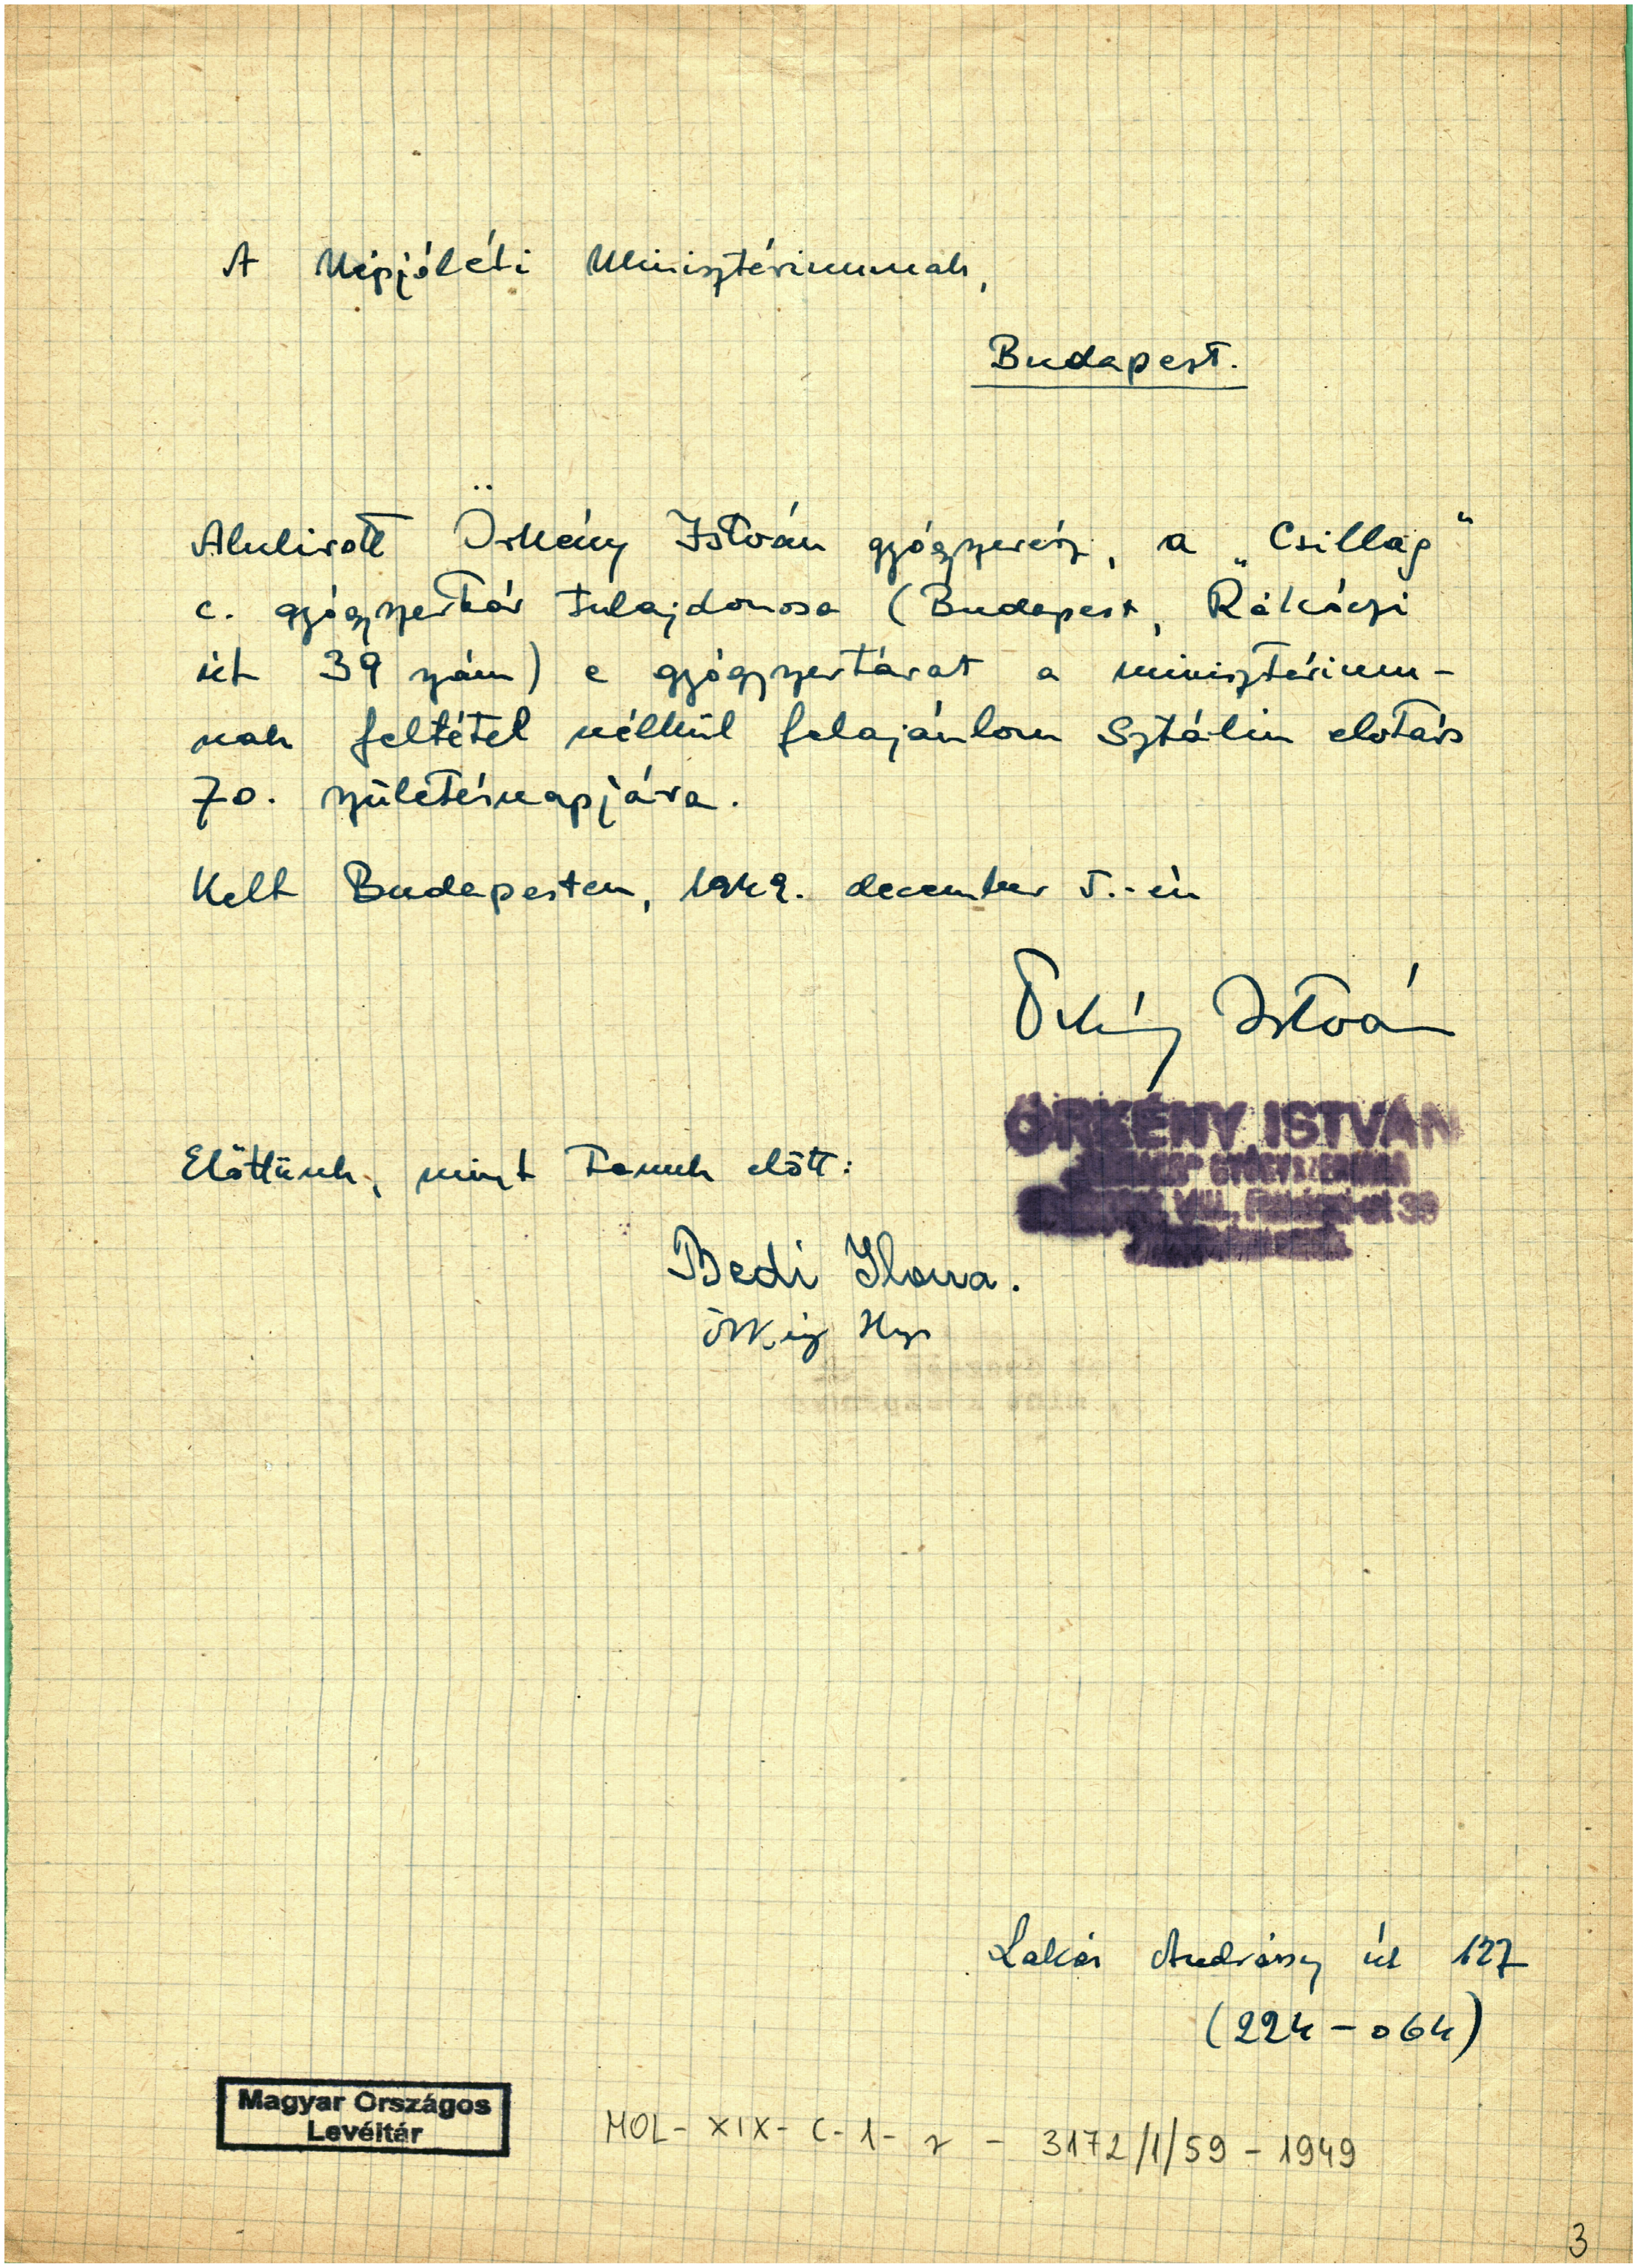 A Népjóléti Minisztériumnak,
Budapest.
Alulirott Örkény István gyógyszerész, a „Csillag"
c. gyógyszertár tulajdonosa (Budapest, Rákóczi
út 39 szám) e gyógyszertárat a minisztérium-
nak feltétel nélkül felajánlom Sztálin elvtárs
70. születésnapjára.
Kelt Budapesten, 1949. december 5.-én
Örkény István
ÖRKÉNY ISTVÁN
VIII., Rákóczi-ut 39
Előttünk, mint Tanuk előtt:
Bedi Ilona.
Lakás Andrássy út 127
(224-064)
Magyar Országos
Levéltár
MOL - XIX - C - 1 - z - 3172/1/59 - 1949
3